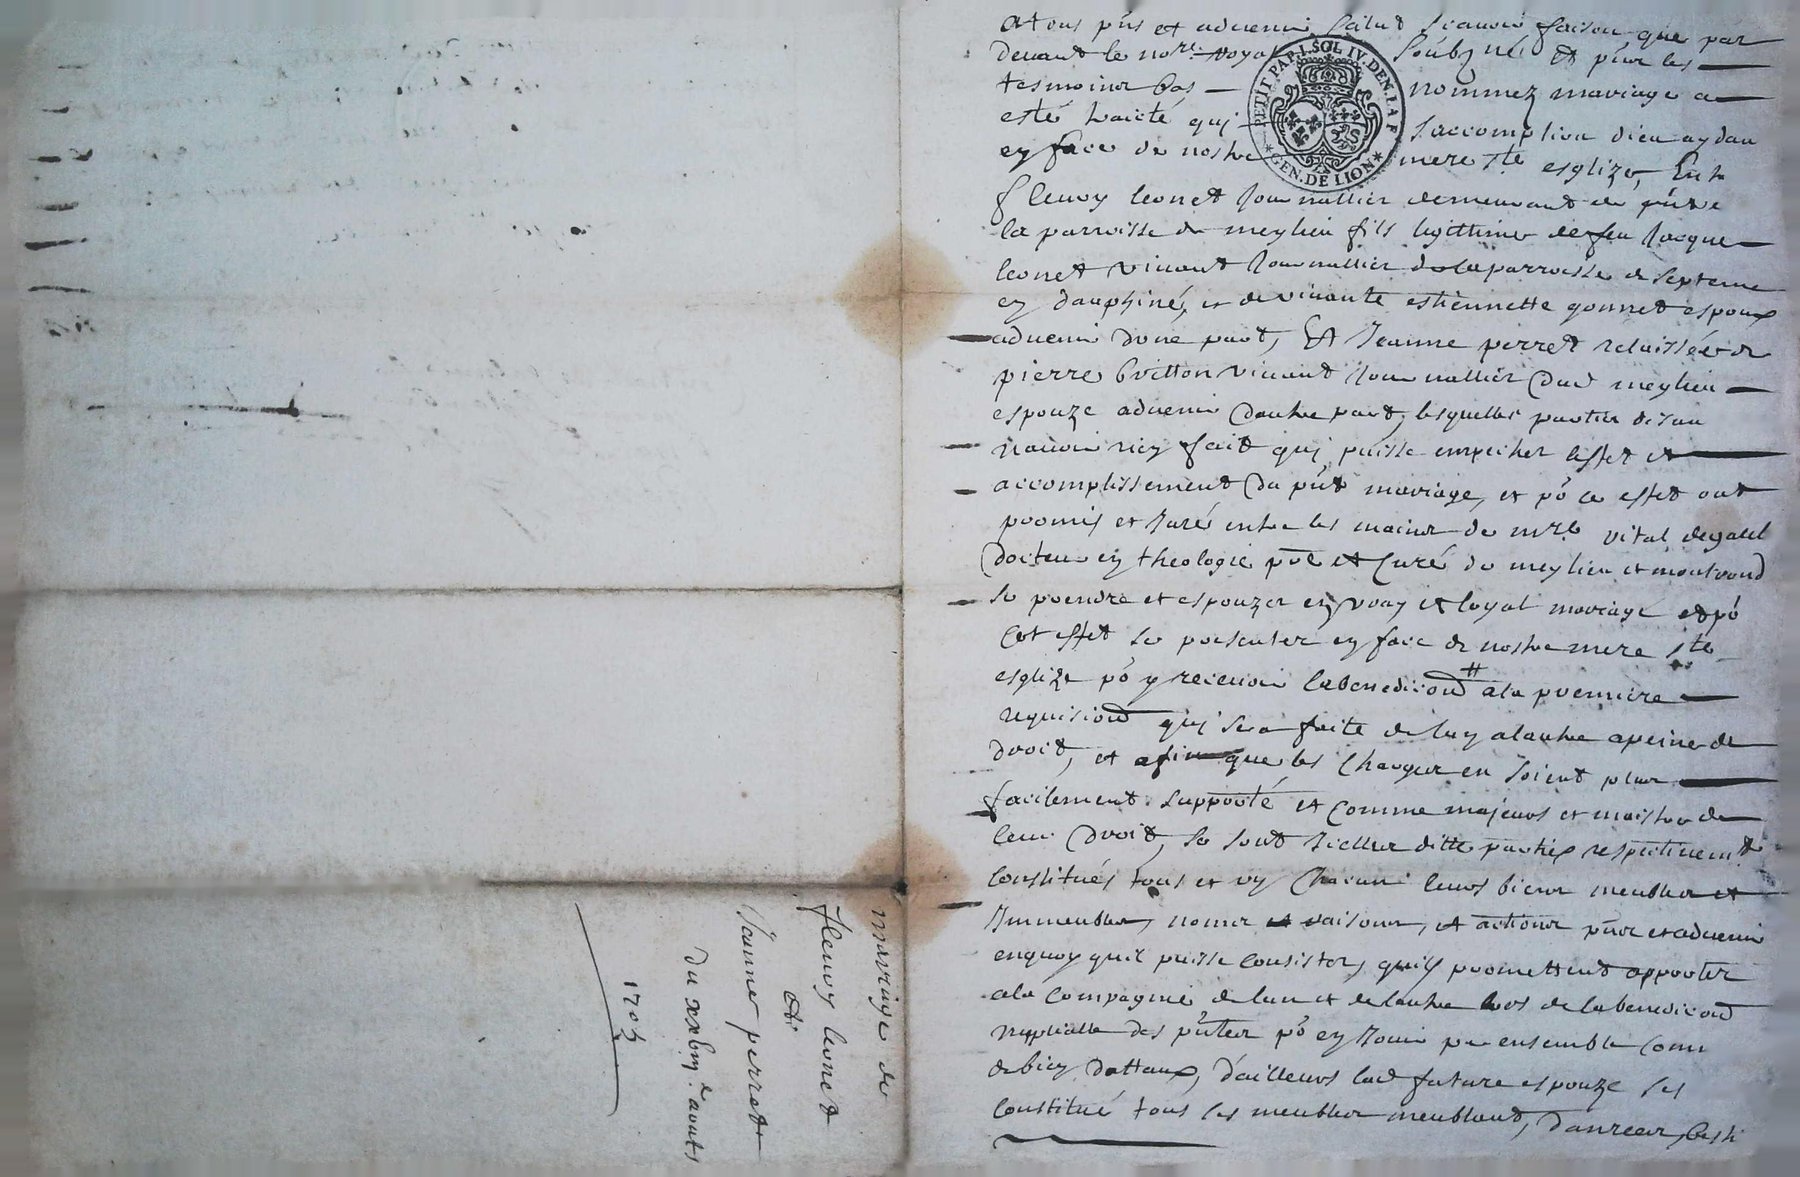 A tous pn̄s et aduenir salut scauoir faison que par
deuant le nore. royal soubzné et pn̄s les
tesmoins bas nommez mariage a
esté traicté quj s'accomplira dieu aydan
en face de nostre mere ste esglize, Entre
fleury leonet Journallier demeurant de pn̄t e
la parroisse de meylieu fils legittime de feu Jacque
leonet viuant Journallier de la parroisse de septeme
en dauphiné, et de viuante estiennette gonnet espoux
aduenir d'une part, Et Jeanne perret relaissée de
pierre britton viuant Journallier dud meylieu
espouze aduenir d'autre part, lesquelles parties disan
n'auoir rien fait quj puisse empecher l'effet et
accomplissement du pn̄t mariage, et po ce effet ont
promis et Juré entre les mains de mre vital degalel
docteur en theologie pbr̄e et Curé de meylieu et montrond
se prendre et espouzer en vray et loyal mariage et po
Cet effet se presenter en face de nostre mere ste
esglize po y receuoir la benediction # a la premiere
requisiōn quj sera faite de l'un a l'autre a peine de
droit, et afin que les charges en soient plus
facilement supporté et comme majeurs et maistre de
leur droit, se sont Icelles ditte parties respectiuemt
Constitués tous et un Chacuns leurs biens meubles et
Immeubles, noms et raisons, et actions pn̄s et aduenir
enquoy qu'il puisse consister, qu'ils promettent apporter
a la Compagnie de l'un et de l'autre lors de la benediction
nuptialle des pn̄tes po en Jouir par ensemble comme
de bien dottaux, d'ailleurs lad future espouze ses
constitué tous ses meubles meublant, danrées, besti
mariage de
fleury leonet
et
Jeanne perret
du xxbiij.e aoust
1703
PETIT PAP. 1. SOL IV. DEN. LA F
GEN. DE LION